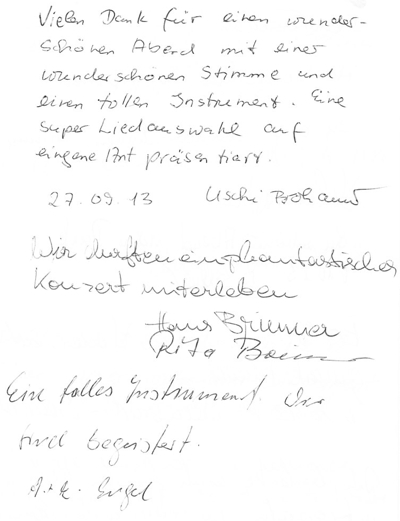 Vielen Dank für einen wunder-
schönen Abend mit einer
wunderschönen Stimme und
einen tollen Instrument. Eine
super Liedauswahl auf
eingene Art präsentiart.
27.09.13 Uschi
Wir durften ein phantastisches
Konzert miterleben
Hans Brunner
Rita
Eine tolles Instrument.
sind begeistert.
Engel